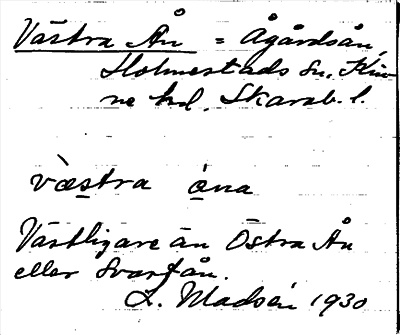 Västra Ån = Ågårdsån,
Holmestads sn. Kin-
ne hd. Skarab. l.
væ̀stra ǻna
Västligare än Östra Ån
eller Svartån.
L. Madsén 1930